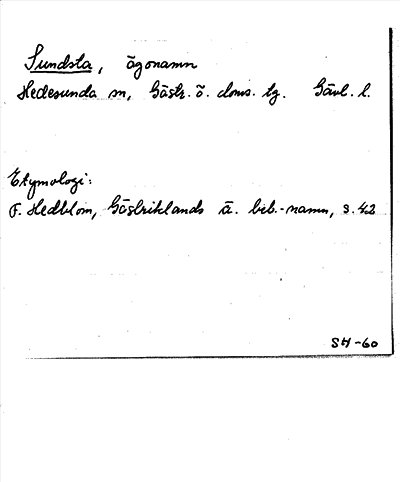 Sundsta, ägonamn
Hedesunda sn, Gästr. ö. doms. tg. Gävl. l.
Etymologi:
F. Hedblom, Gästriklands ä. beb.-namn, s. 42
SH-60